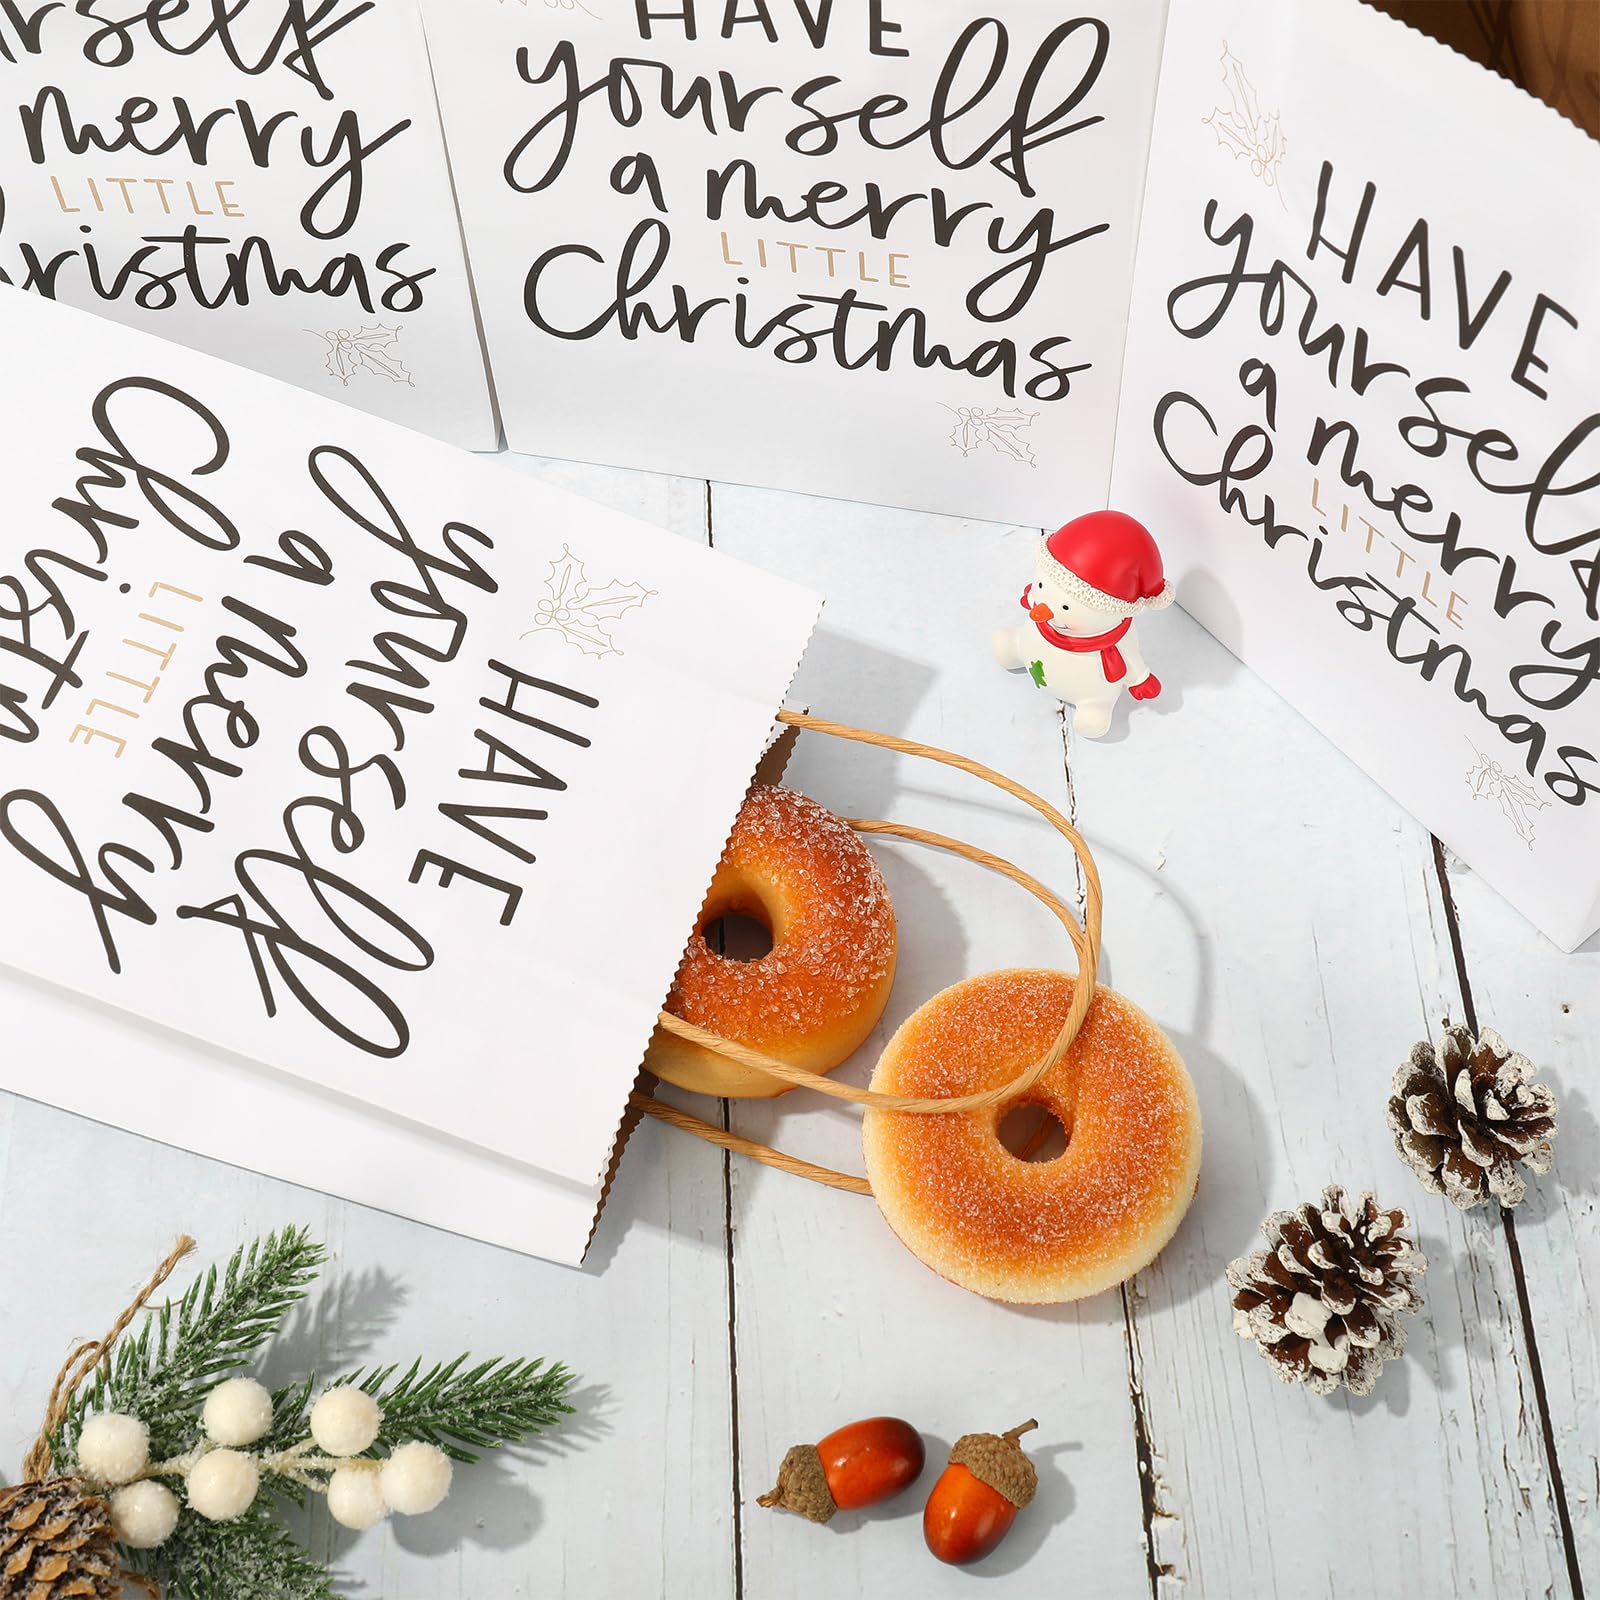 rself
merry
LITTLE
hristmas
HAVE
yourself
a merry
LITTLE
Christmas
HAVE
yourself
a merry
LITTLE
Christmas
HAVE
yourself
a merry
LITTLE
Christm